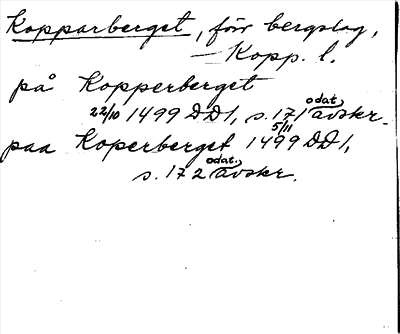 Kopparberget, förr bergslag,
Kopp. l.
på Kopperberget
22/10 1499 DD1, s. 171 odat. avskr.
paa Koperberget 5/11 1499 DD1,
s. 172 odat. avskr.